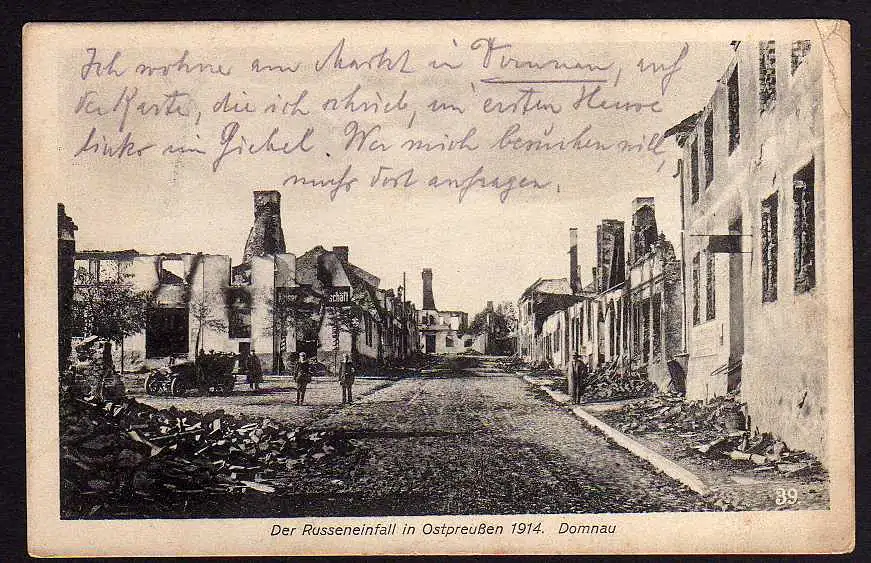 Ich wohne am Markt in Domnau, auf
der Karte, die ich schrieb, im ersten Hause
links im Giebel. Wer mich besuchen will,
muß dort anfragen.
schäft
39
Der Russeneinfall in Ostpreußen 1914. Domnau